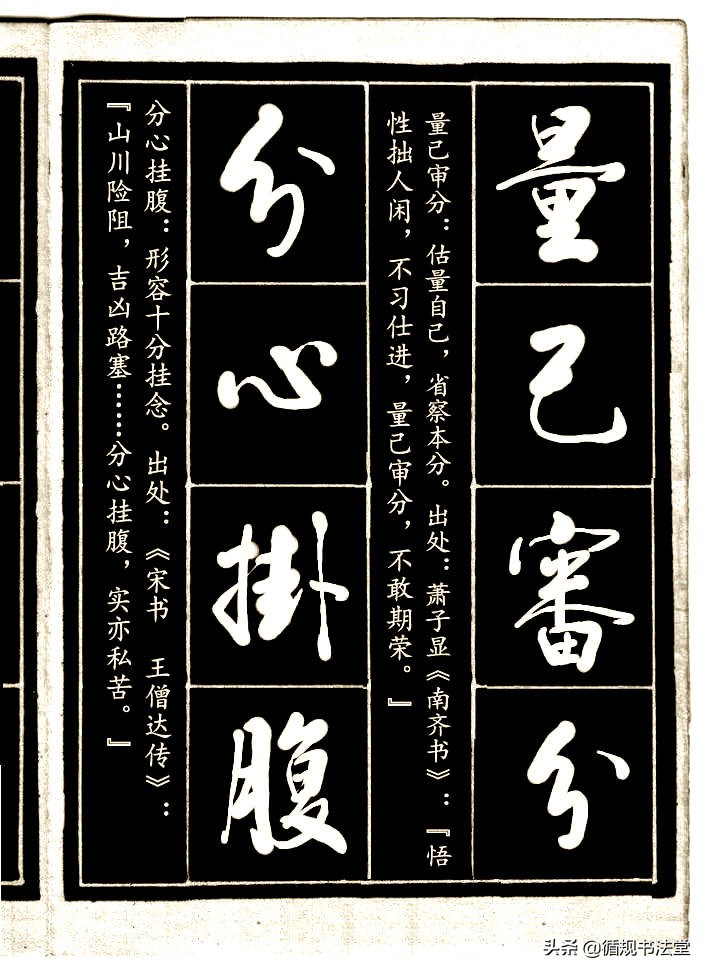 量己審分
量己审分：估量自己，省察本分。出处：萧子显《南齐书》：『悟
性拙人闲，不习仕进，量己审分，不敢期荣。』
分心掛腹
分心挂腹：形容十分挂念。出处：《宋书 王僧达传》：
『山川险阻，吉凶路塞……分心挂腹，实亦私苦。』
头条 @循规书法堂